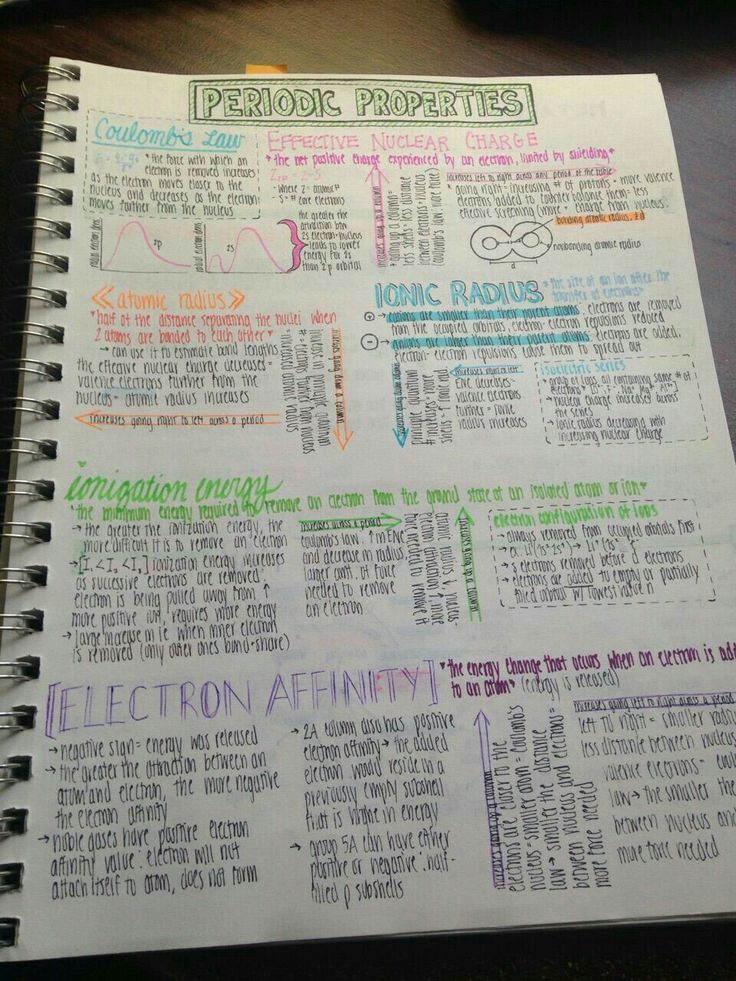 PERIODIC PROPERTIES
Coulomb's Law
*the force with which an
electron is removed increases
as the electron moves closer to the
nucleus and decreases as the electron
moves farther from the nucleus
2p
2s
the greater the
attraction btw
2s electron + nucleus
leads to lower
energy for 2s
than 2p orbital
EFFECTIVE NUCLEAR CHARGE
*the net positive charge experienced by an electron, limited by shielding*
Zeff = Z-S
- where Z = atomic #
- S = # core electrons
increases going up a column
increases left to right across any period of the table
going right = increasing # of protons = more valence
electrons added to counter balance them = less
effective screening (more + charge from nucleus)
bonding atomic radius, ½d
nonbonding atomic radius
d
<<atomic radius>>
*half of the distance separating the nuclei when
2 atoms are bonded to each other*
→ can use it to estimate bond lengths
the effective nuclear charge decreases =
valence electrons further from the
nucleus = atomic radius increases
increases going right to left across a period
increases going down a column
IONIC RADIUS
*the size of an ion after the
transfer of electrons*
+ → cations are smaller than their parent atoms: electrons are removed
from the occupied orbitals, electron-electron repulsions reduced
- → anions are larger than their parent atoms: electrons are added,
electron-electron repulsions cause them to spread out
increases going down a column
principle quantum
# increases = more
shells
increases right to left
ENC decreases =
valence electrons
further = ionic
radius increases
isoelectric series
→ group of ions all containing same # of
electrons
→ nuclear charge increases across
the series
→ ionic radius decreasing with
increasing nuclear charge
ionization energy
*the minimum energy required to remove an electron from the ground state of an isolated atom or ion*
→ the greater the ionization energy, the
more difficult it is to remove an electron
→ [I₁<I₂<I₃] ionization energy increases
as successive electrons are removed:
electron is being pulled away from ↑
more positive ion, requires more energy
→ large increase in ie when inner electron
is removed (only outer ones bond+share)
increases across a period
coulomb's law: ↑ in ENC
and decrease in radius,
larger amt. of force
needed to remove
an electron
increases going up a column
electron configuration of ions
→ always removed from occupied orbitals first
→ ex. Li(1s²2s¹) → Li⁺(1s²)
→ s electrons removed before d electrons
→ electrons are added to empty or partially
filled orbital w/ lowest value n
[ELECTRON AFFINITY]
*the energy change that occurs when an electron is ad
to an atom* (energy is released)
→ negative sign = energy was released
→ the greater the attraction between an
atom and electron, the more negative
the electron affinity
→ noble gases have positive electron
affinity value: electron will not
attach itself to atom, does not form
→ 2A column also has positive
electron affinity → the added
electron would reside in a
previously empty subshell
that is higher in energy
→ group 5A can have either
positive or negative: half-
filled p subshells
increases going up a column
electrons are closer to the
nucleus = smaller atom = coulomb's
law → smaller the distance
between nucleus and electrons =
more force needed
increases going left to right across a period
left to right = smaller radiu
less distance between nucleus
valence electrons = coul
law → the smaller the
between nucleus and
more force needed